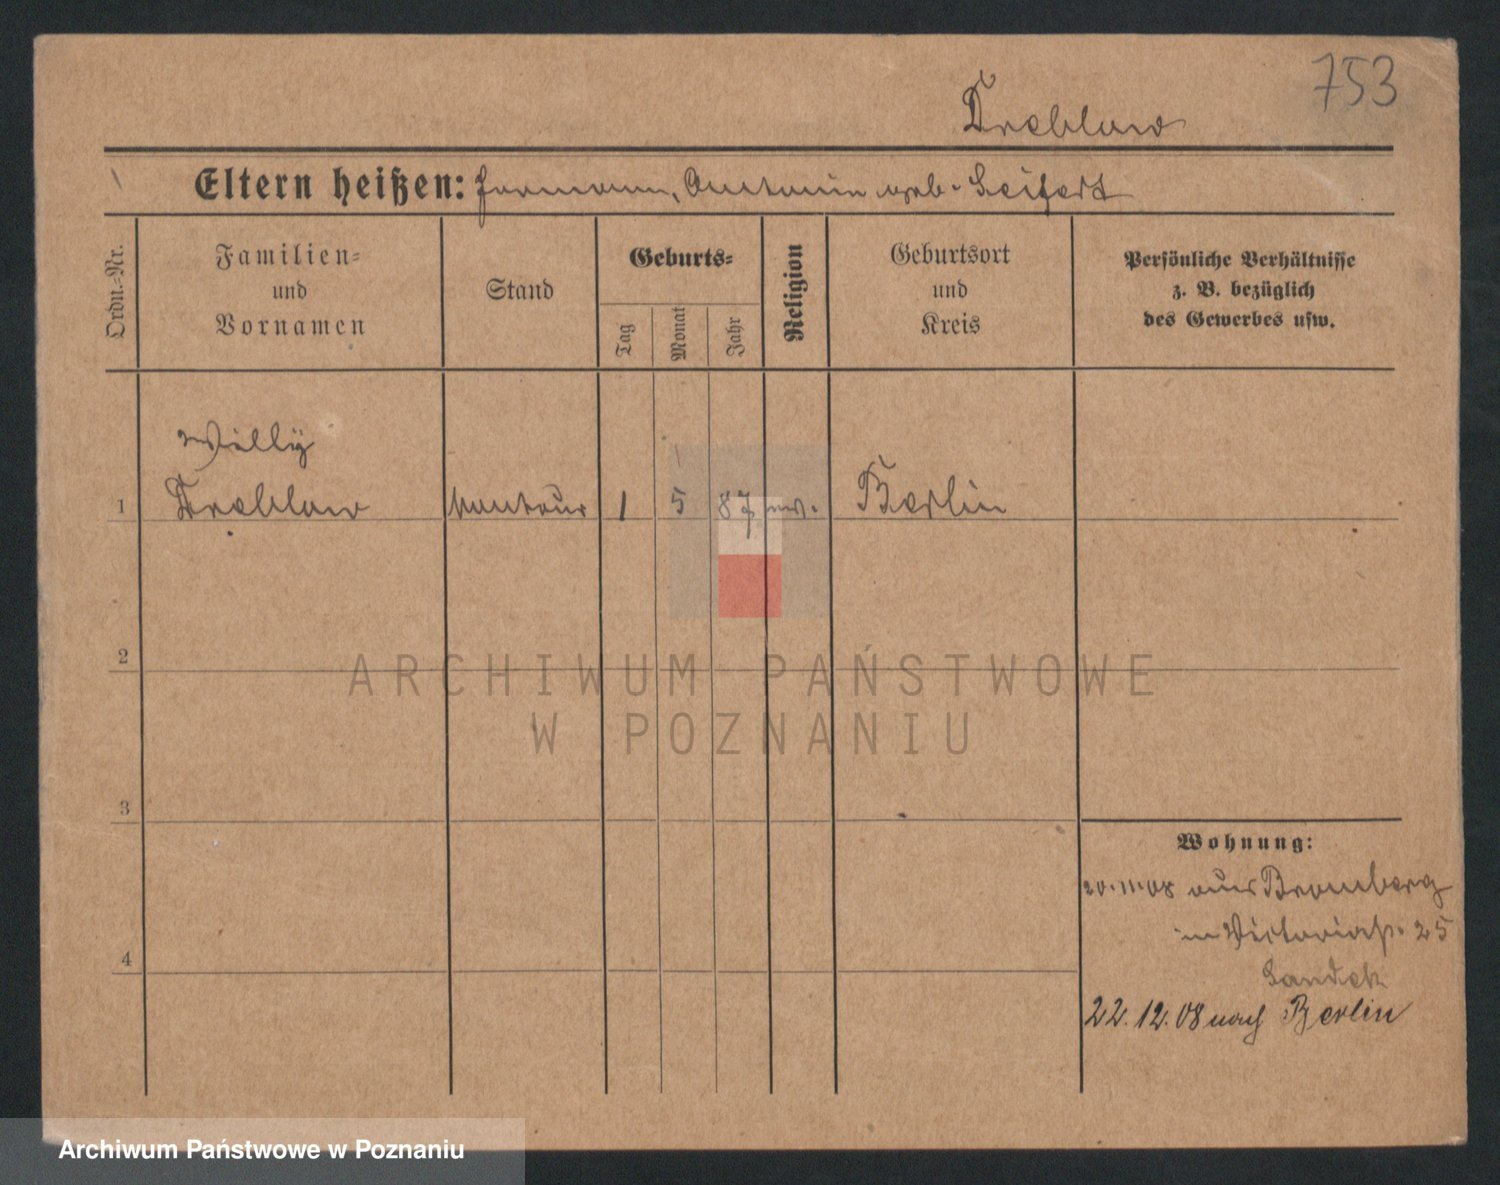 753
Treblow
Eltern heißen: Hermann, geb. Seifert
Ordn.-Nr.
Familien-
und
Vornamen
Stand
Geburts-
Tag
Monat
Jahr
Religion
Geburtsort
und
Kreis
Persönliche Verhältnisse
z. B. bezüglich
des Gewerbes usw.
Willy
1 Treblow Monteur 1 5 87 ev. Berlin
2
3
4
Wohnung:
20.11.08 aus Bromberg
in Victoriastr. 25
22.12.08 nach Berlin
ARCHIWUM PAŃSTWOWE
W POZNANIU
Archiwum Państwowe w Poznaniu